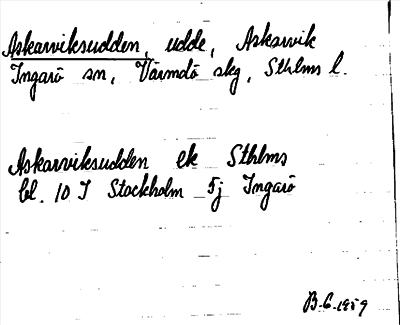 Askarviksudden, udde, Askarvik
Ingarö sn, Värmdö skg, Sthlms l.
Askarviksudden ek Sthlms
bl. 10 I Stockholm 5j Ingarö
B.G. 1959